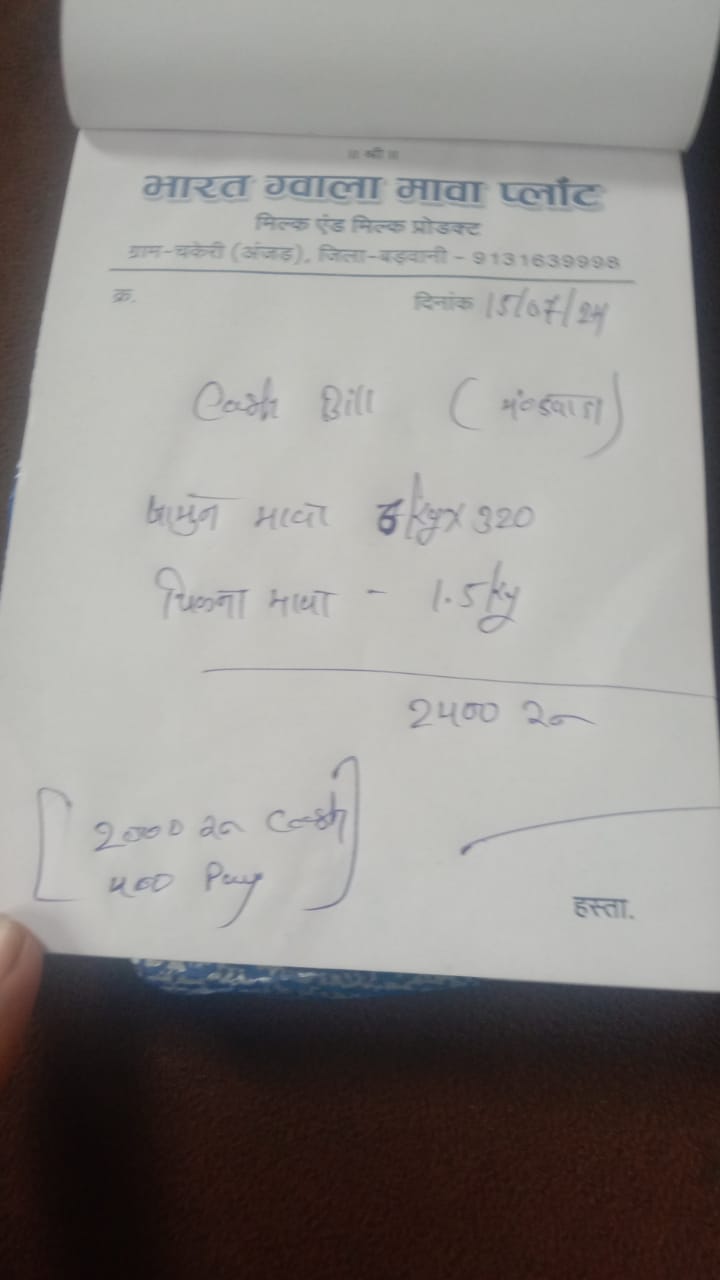 ॥ श्री ॥
भारत ग्वाला मावा प्लांट
मिल्क एंड मिल्क प्रोडक्ट
ग्राम-चकेरी (अंजड), जिला-बड़वानी - 9131639998
क्र.
दिनांक 15/07/24
Cash Bill (मंडवाडा)
जामुन मावा 6kg x 320
चिकना मावा - 1.5 kg
2400 रु
2000 रु Cash
400 Pay
हस्ता.